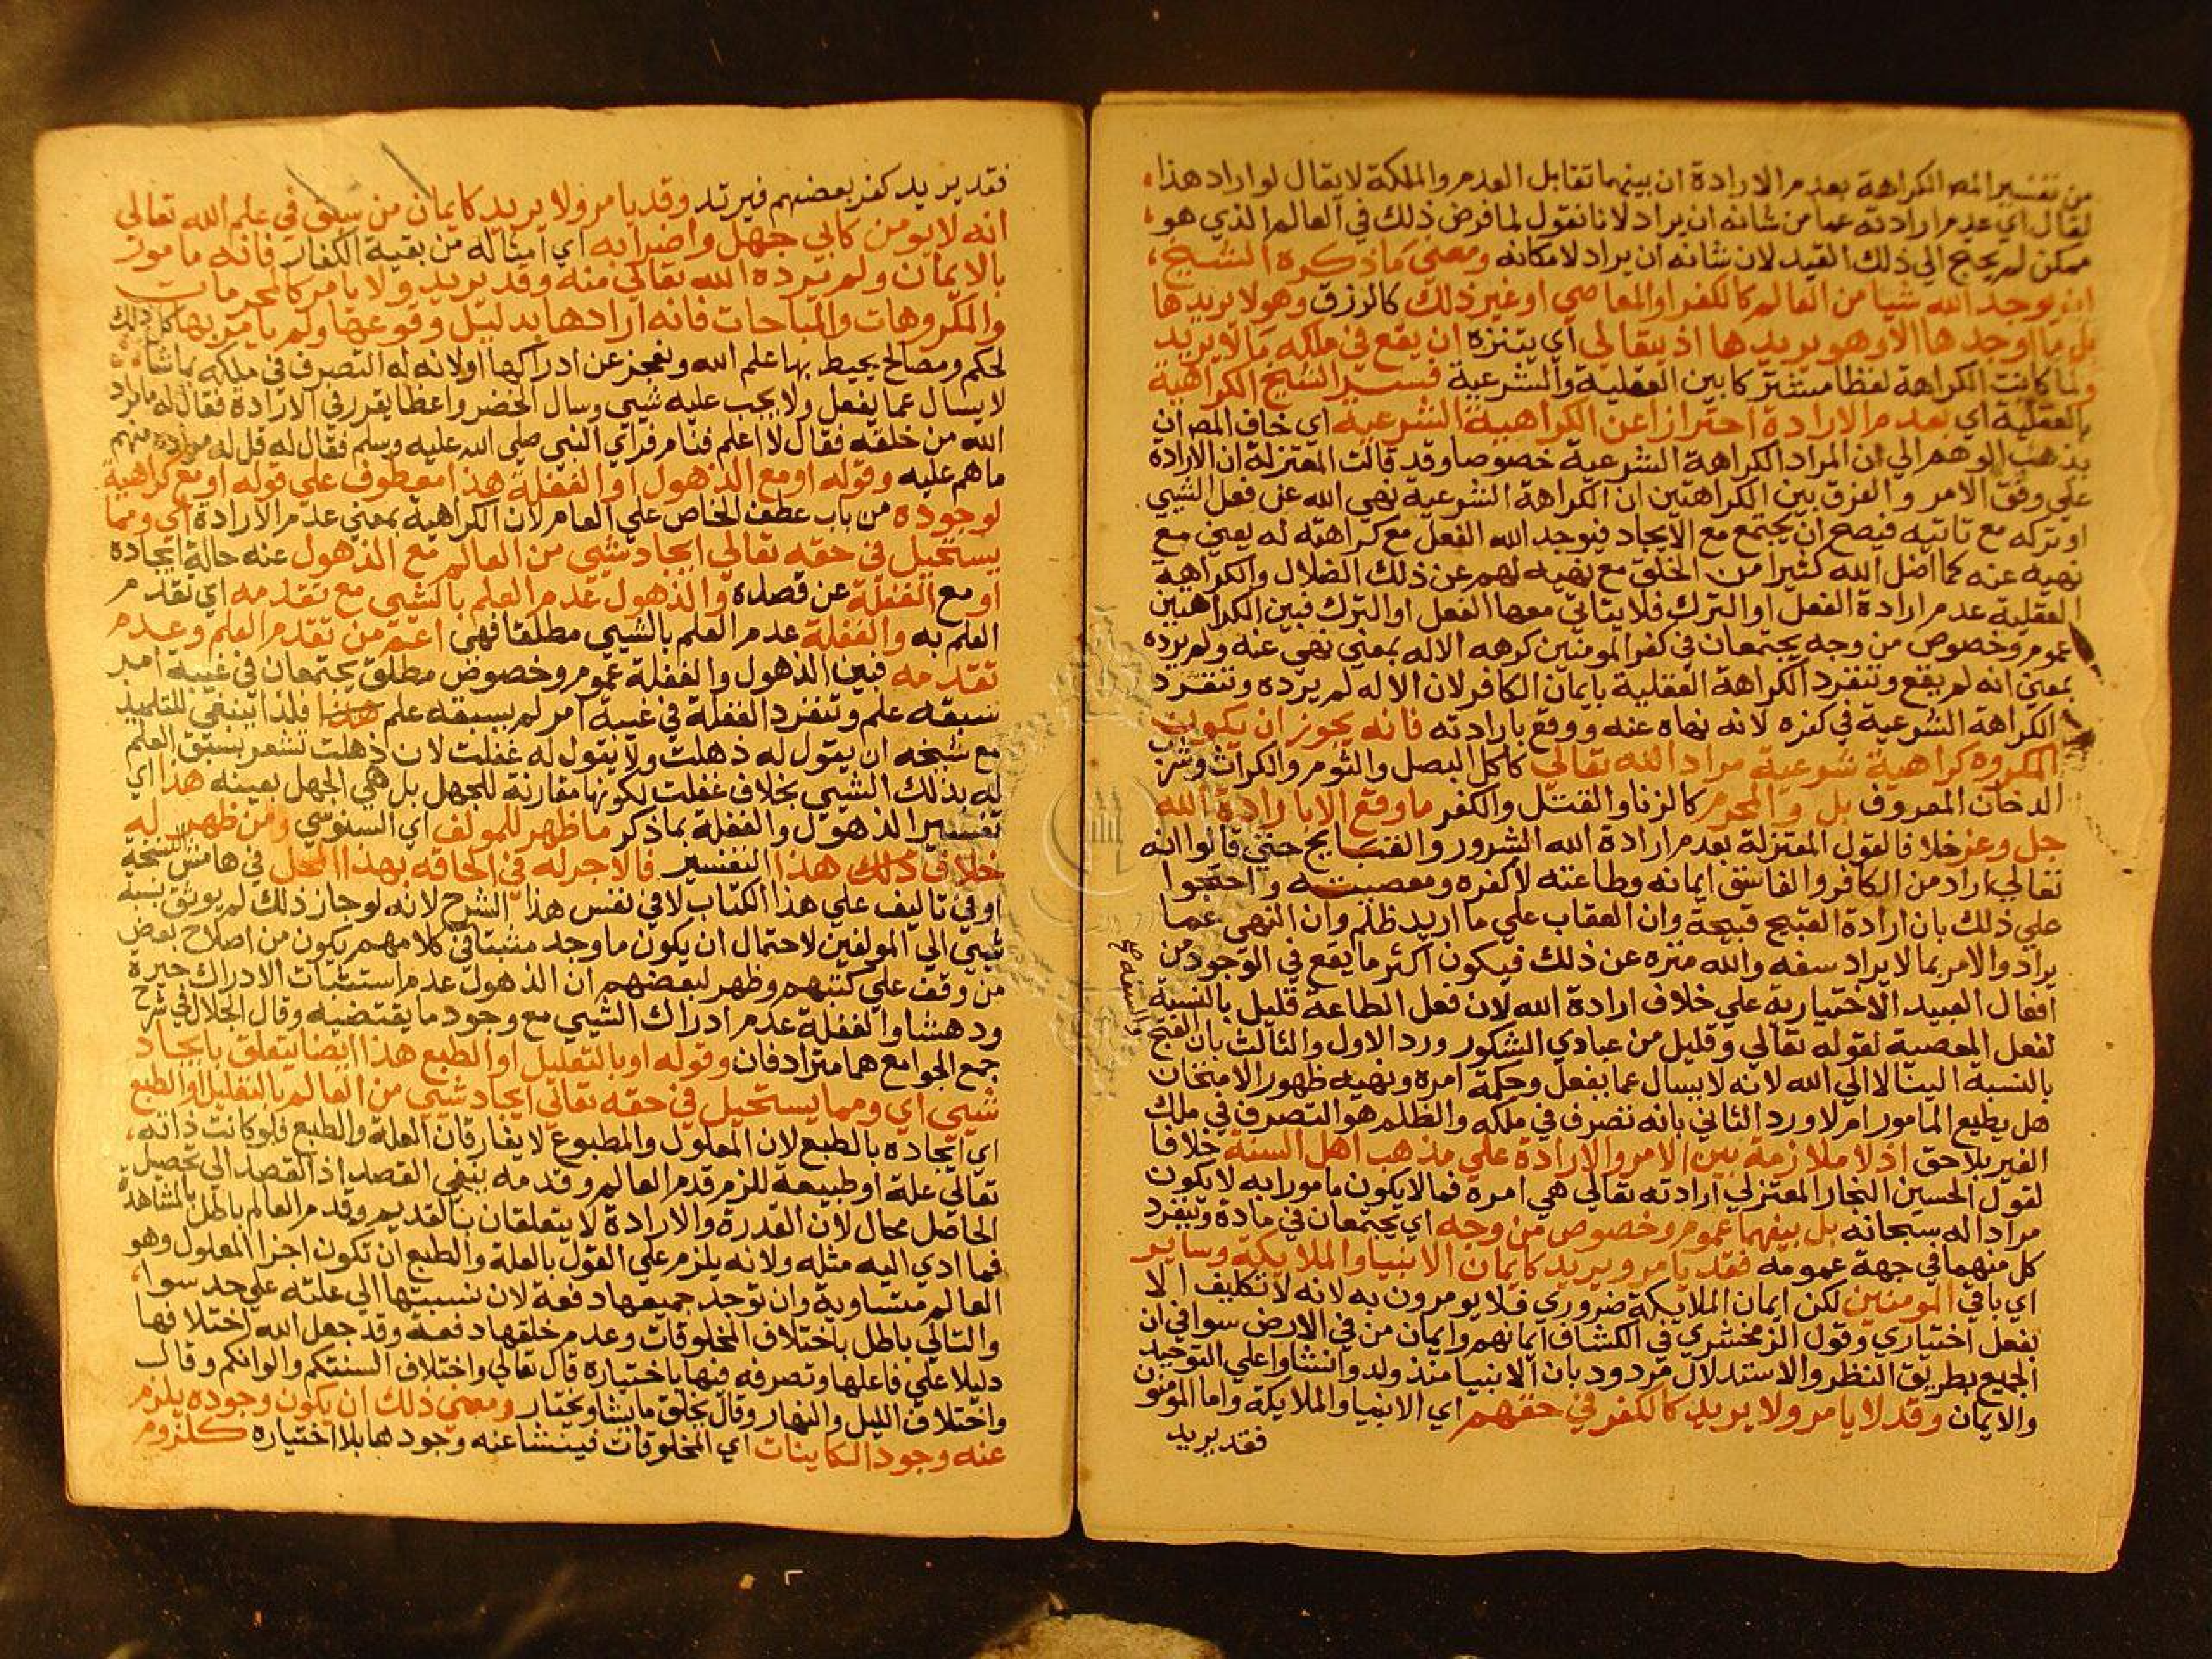 من تفسير المص الكراهة بعدم الارادة ان بينهما تقابل العدم والملكة لا يقال لو اراد هذا
لقال اي عدم ارادته عما من شانه ان يراد لانا نقول لما فرض ذلك في العالم الذي هو
ممكن لم يحتج الي ذلك القيد لان شانه ان يراد لامكانه ومعني ما ذكره الشيخ
ان يوجد الله شيا من العالم كالكفر او المعاصي او غير ذلك كالرزق وهو لا يريدها
بل ما اوجدها الا وهو يريدها اذ يتعالي اي يتنزه ان يقع في ملكه ما لا يريد
ولما كانت الكراهة لفظا مشتركا بين العقلية والشرعية فسر الشيخ الكراهية
بالعقلية اي بعدم الارادة احترازا عن الكراهية الشرعية اي خاف المص ان
يذهب الوهم الي ان المراد الكراهة الشرعية خصوصا وقد قالت المعتزلة ان الارادة
علي وفق الامر والفرق بين الكراهتين ان الكراهة الشرعية نهي الله عن فعل الشيي
او تركه مع تاتيه فيصح ان يجتمع مع الايجاد فيوجد الله الفعل مع كراهته له يعني مع
نهيه عنه كما اضل الله كثيرا من الخلق مع نهيه لهم عن ذلك الضلال والكراهية
العقلية عدم ارادة الفعل او الترك فلا يتاتي معها الفعل او الترك فبين الكراهيتين
عموم وخصوص من وجه يجتمعان في كفر المومنين كرهه الاله بمعني نهي عنه ولم يرده
بمعني انه لم يقع وتنفرد الكراهة العقلية بايمان الكافر لان الاله لم يرده وتنفرد
الكراهة الشرعية في كفره لانه نهاه عنه ووقع بارادته فانه يجوز ان يكون
المكروه كراهية شرعية مراد الله تعالي كاكل البصل والثوم والكراث وشرب
الدخان المعروف بل والمحرم كالزنا والقتل والكفر ما وقع الا بارادة الله
جل وعز خلافا لقول المعتزلة بعدم ارادة الله الشرور والقبايح حتي قالوا انه
تعالي اراد من الكافر والفاسق ايمانه وطاعته لا كفره ومعصيته واحتجوا
علي ذلك بان ارادة القبيح قبيحة وان العقاب علي ما اريد ظلم وان النهي عما
يراد والامر بما لا يراد سفه والله منزه عن ذلك فيكون اكثر ما يقع في الوجود من
والسفه صح
افعال العبيد الاختيارية علي خلاف ارادة الله لان فعل الطاعة قليل بالنسبة
لفعل المعصية لقوله تعالي وقليل من عبادي الشكور ورد الاول والثالث بان القبح
بالنسبة الينا لا الي الله لانه لا يسال عما يفعل وحكمة امره ونهيه ظهور الامتحان
هل يطيع المامور ام لا ورد الثاني بانه تصرف في ملكه والظلم هو التصرف في ملك
الغير بلا حق اذ لا ملازمة بين الامر والارادة علي مذهب اهل السنة خلافا
لقول الحسين النجار المعتزلي ارادته تعالي هي امره فما لا يكون مامورا به لا يكون
مرادا له سبحانه بل بينهما عموم وخصوص من وجه اي يجتمعان في مادة وينفرد
كل منهما في جهة عمومه فقد يامر ويريد كايمان الانبيا والملايكة وساير
اي باقي المومنين لكن ايمان الملايكة ضروري فلا يومرون به لانه لا تكليف الا
بفعل اختياري وقول الزمخشري في الكشاف ايمانهم وايمان من في الارض سوا في ان
الجميع بطريق النظر والاستدلال مردود بان الانبيا منذ ولدوا نشاوا علي التوحيد
والايمان وقد لا يامر ولا يريد كالكفر في حقهم اي الانبيا والملايكة واما المومنون
فقد يريد
فقد يريد كفر بعضهم فيرتد وقد يامر ولا يريد كايمان من سبق في علم الله تعالي
انه لا يومن كابي جهل واضرابه اي امثاله من بقية الكفار فانه مامور
بالايمان ولم يرده الله تعالي منه وقد يريد ولا يامر كالمحرمات
والمكروهات والمباحات فانه ارادها بدليل وقوعها ولم يامر بها كل ذلك
لحكم ومصالح يحيط بها علم الله ونعجز عن ادراكها او لانه له التصرف في ملكه بما شاء
لا يسال عما يفعل ولا يجب عليه شيي وسال الخضر واعظا يقرر في الارادة فقال له ما مراد
الله من خلقه فقال لا اعلم فنام فراي النبي صلي الله عليه وسلم فقال له قل له مراده منهم
ما هم عليه وقوله او مع الذهول او الغفلة هذا معطوف علي قوله او مع كراهية
لوجوده من باب عطف الخاص علي العام لان الكراهية بمعني عدم الارادة اي ومما
يستحيل في حقه تعالي ايجاد شيي من العالم مع الذهول عنه حالة ايجاده
او مع الغفلة عن قصده والذهول عدم العلم بالشيي مع تقدمه اي تقدم
العلم به والغفلة عدم العلم بالشيي مطلقا فهي اعم من تقدم العلم وعدم
تقدمه فبين الذهول والغفلة عموم وخصوص مطلق يجتمعان في غيبة امر
سبقه علم وتنفرد الغفلة في غيبة امر لم يسبقه علم هذا فلذا ينبغي للتلميذ
مع شيخه ان يقول له ذهلت ولا يقول له غفلت لان ذهلت تشعر بسبق العلم
له بذلك الشيي بخلاف غفلت لكونها مقارنة للجهل بل هي الجهل بعينه هذا اي
تفسير الذهول والغفلة بما ذكر ما ظهر للمولف اي السنوسي ومن ظهر له
خلاف ذلك هذا التفسير فالاجر له في الحاقه بهذا المحل في هامش النسخة
او في تاليف علي هذا الكتاب لا في نفس هذا الشرح لانه لو جاز ذلك لم يوثق بنسبة
شيي الي المولفين لاحتمال ان يكون ما وجد مثبتا في كلامهم يكون من اصلاح بعض
من وقف علي كتبهم وظهر لبعضهم ان الذهول عدم استثبات الادراك حيرة
ودهشا والغفلة عدم ادراك الشيي مع وجود ما يقتضيه وقال الجلال في شرح
جمع الجوامع هما مترادفان وقوله او بالتعليل او الطبع هذا ايضا يتعلق بايجاد
شيي اي ومما يستحيل في حقه تعالي ايجاد شيي من العالم بالتعليل او الطبع
اي ايجاده بالطبع لان المعلول والمطبوع لا يفارقان العلة والطبع فلو كانت ذاته
تعالي علة او طبيعة للزم قدم العالم وقدمه ينفي القصد اذ القصد الي تحصيل
الحاصل محال لان القدرة والارادة لا يتعلقان بالقديم وقدم العالم باطل بالمشاهدة
فما ادي اليه مثله ولانه يلزم علي القول بالعلة والطبع ان تكون اجزا المعلول وهو
العالم متساوية وان توجد جميعها دفعة لان نسبتها الي علته علي حد سوا
والتالي باطل باختلاف المخلوقات وعدم خلقها دفعة وقد جعل الله اختلافها
دليلا علي فاعلها وتصرفه فيها باختياره قال تعالي واختلاف السنتكم والوانكم وقال
واختلاف الليل والنهار وقال يخلق ما يشا ويختار ومعني ذلك ان يكون وجوده يلزم
عنه وجود الكاينات اي المخلوقات فينشا عنه وجودها بلا اختياره كلزوم